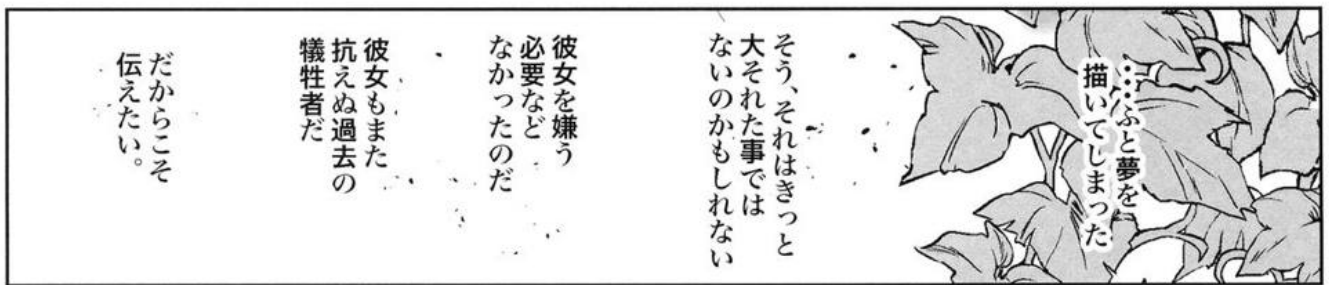 …ふと夢を
描いてしまった
そう、それはきっと
大それた事では
ないのかもしれない
彼女を嫌う
必要など
なかったのだ
彼女もまた
抗えぬ過去の
犠牲者だ
だからこそ
伝えたい。